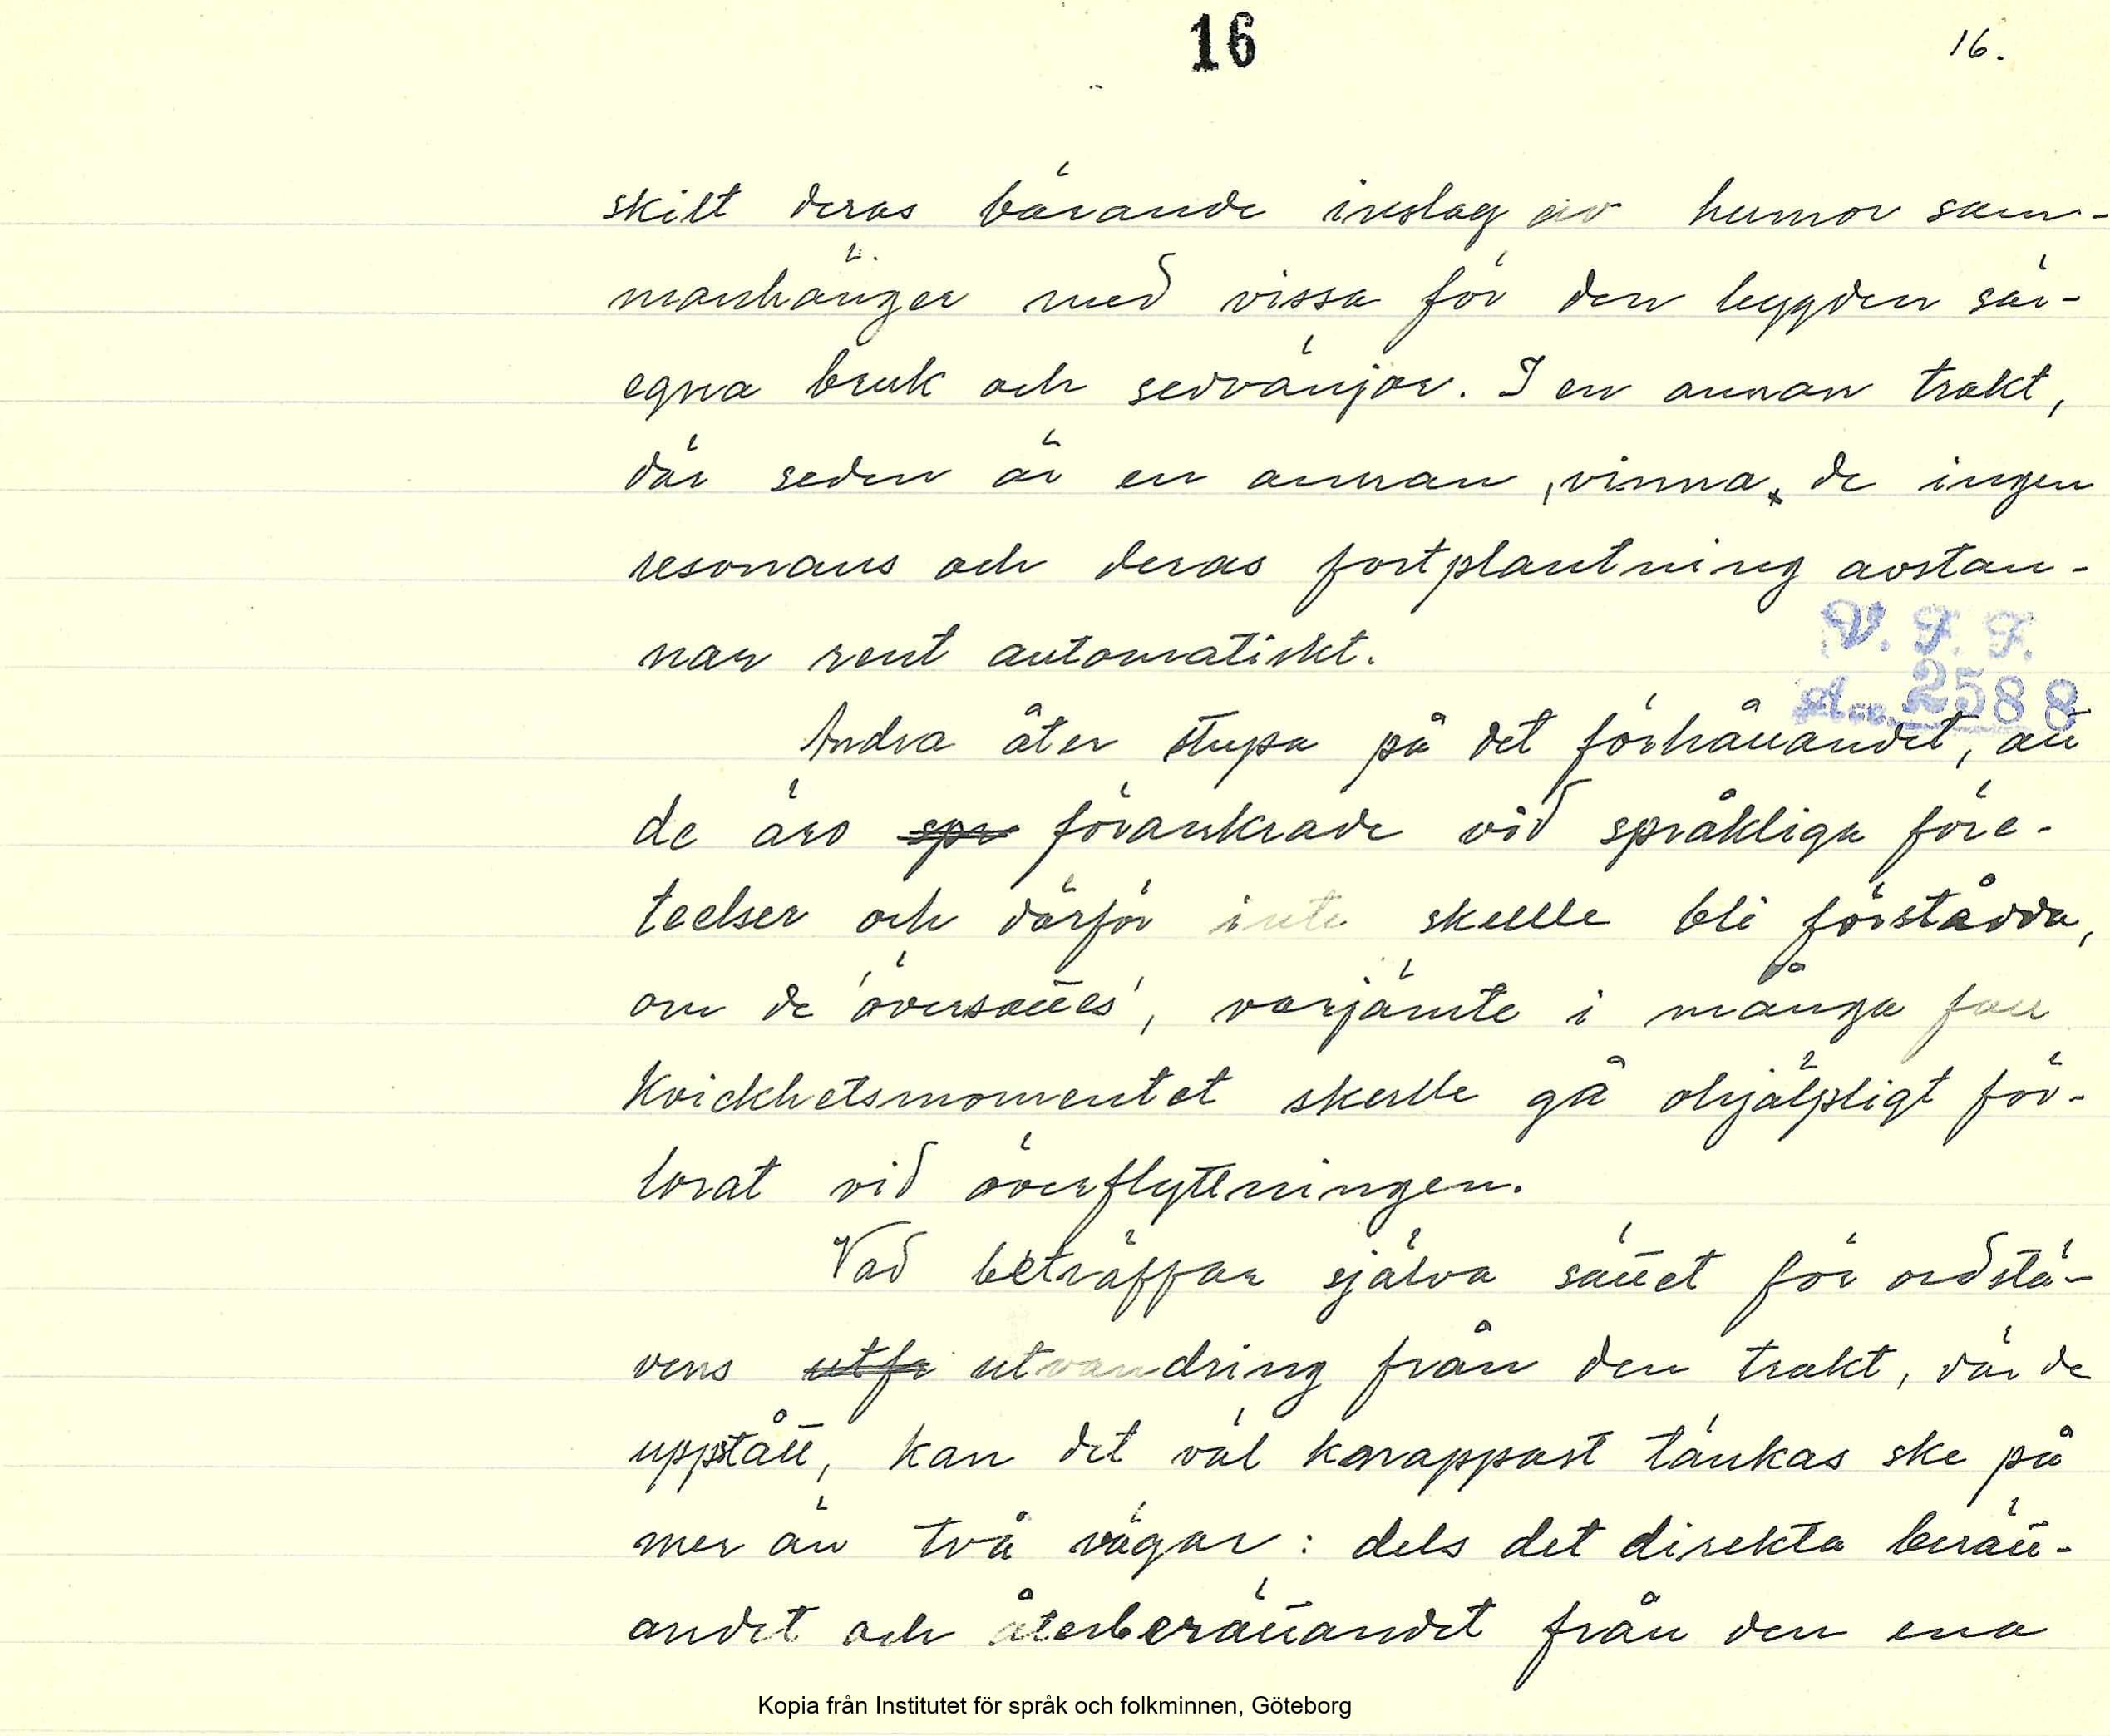 16
16.
skilt deras bärande inslag av humor sam-
manhänger med vissa för den bygden sär-
egna bruk och sedvänjor. I en annan trakt,
där seden är en annan, vinna de ingen
resonans och deras fortplantning avstan-
nar rent automatiskt.
V. F. F.
Acc. 2588
Andra åter stupa på det förhållandet, att
de äro spr förankrade vid språkliga före-
teelser och därför inte skulle bli förstådda,
om de 'översattes', varjämte i många fall
kvickhetsmomentet skulle gå ohjälpligt för-
lorat vid överflyttningen.
Vad beträffar själva sättet för ordstä-
vens utfr utvandring från den trakt, där de
uppstått, kan det väl knappast tänkas ske på
mer än två vägar: dels det direkta berätt-
andet och återberättandet från den ena
Kopia från Institutet för språk och folkminnen, Göteborg